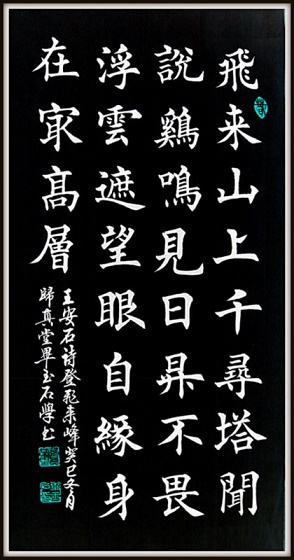 飛来山上千尋塔聞
說鷄鳴見日昇不畏
浮雲遮望眼自緣身
在㝡高層
王安石詩登飛来峰癸巳冬月
歸真堂畢玉石學书